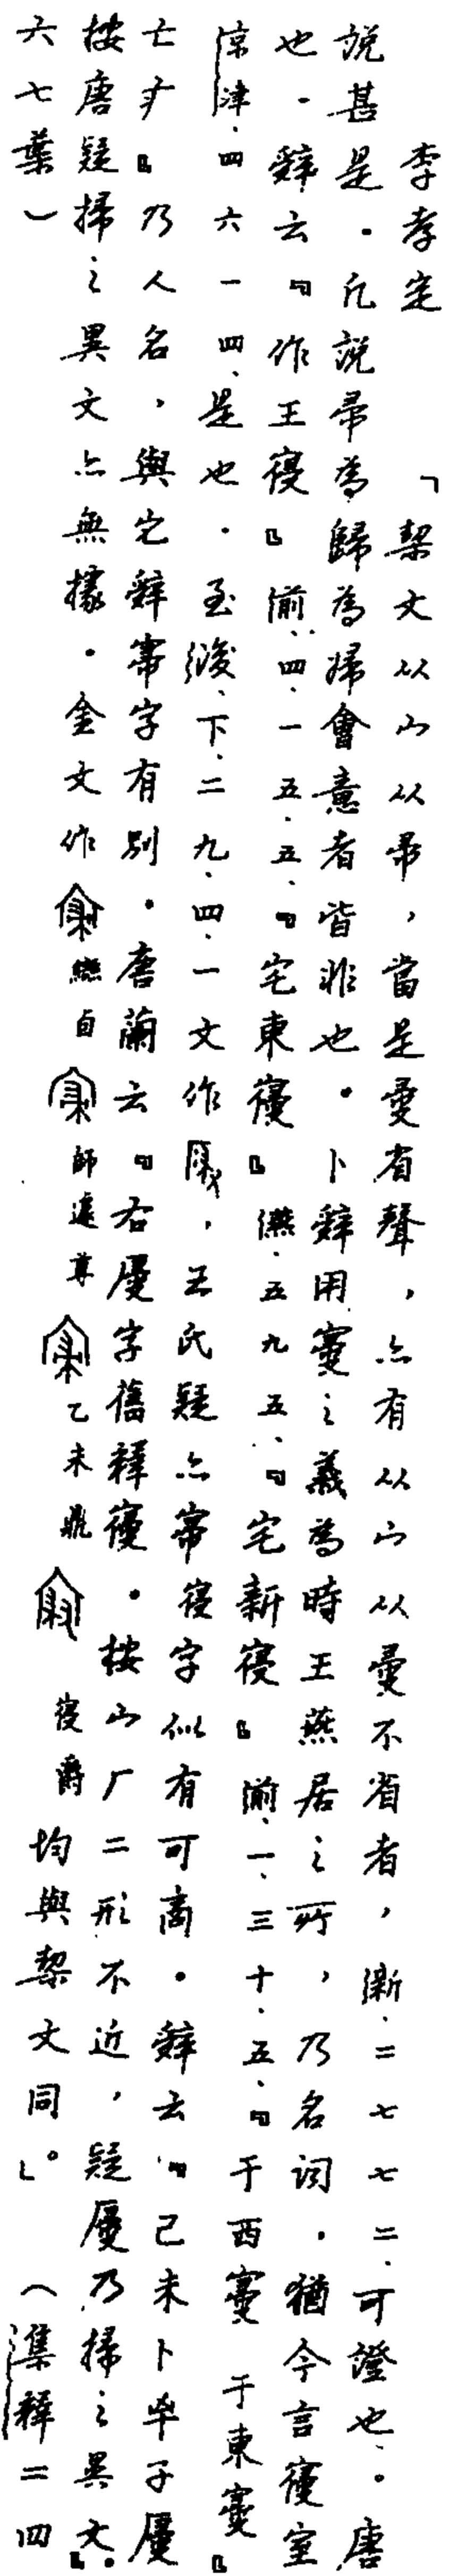 李孝定「契文从宀从帚，當是𡩠省聲，亦有从宀从𡩠不省者，新·二七七二·可證也。唐
說甚是。凡說帚為歸為婦會意者皆非也。卜辭用寑之義為時王燕居之所，乃名詞。猶今言寢室
也。辭云『作王寑』前·四·一五·五·『宅東寑』燕·五九五·『宅新寑』前·一·三十·五·『于西寑 于東寑』
京津·四六一四·是也。至後·下·二九·四·一文作，王氏疑亦㝲寑字似有可商。辭云『己未卜𠦪子
亡疒』乃人名，與它辭㝲字有別。唐蘭云『右字舊釋寑。按宀厂二形不近，疑乃掃之異文』。
按唐疑掃之異文亦無據。金文作師遽尊乙未鼎寑爵均與契文同」。（集釋二四
六七葉）